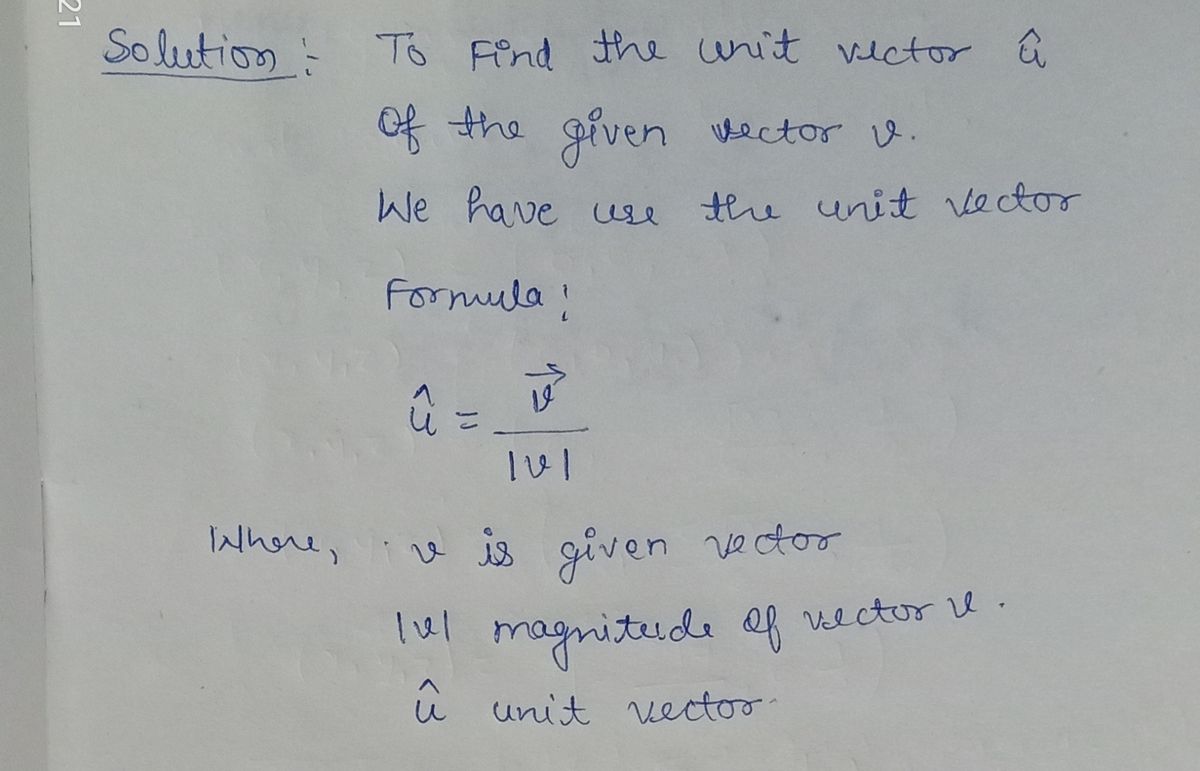 21
Solution :- To Find the unit vector û
Of the given vector v.
We have use the unit vector
Formula :
û = v⃗ / |v|
Where, v is given vector
|v| magnitude of vector v.
û unit vector